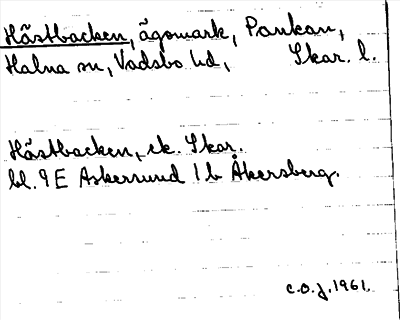 Hästbacken, ägomark, Pankan,
Halna sn, Vadsbo hd, Skar. l.
Hästbacken, ek. Skar.
bl. 9 E Askersund 1 b Åkersberg.
C.O.J. 1961.